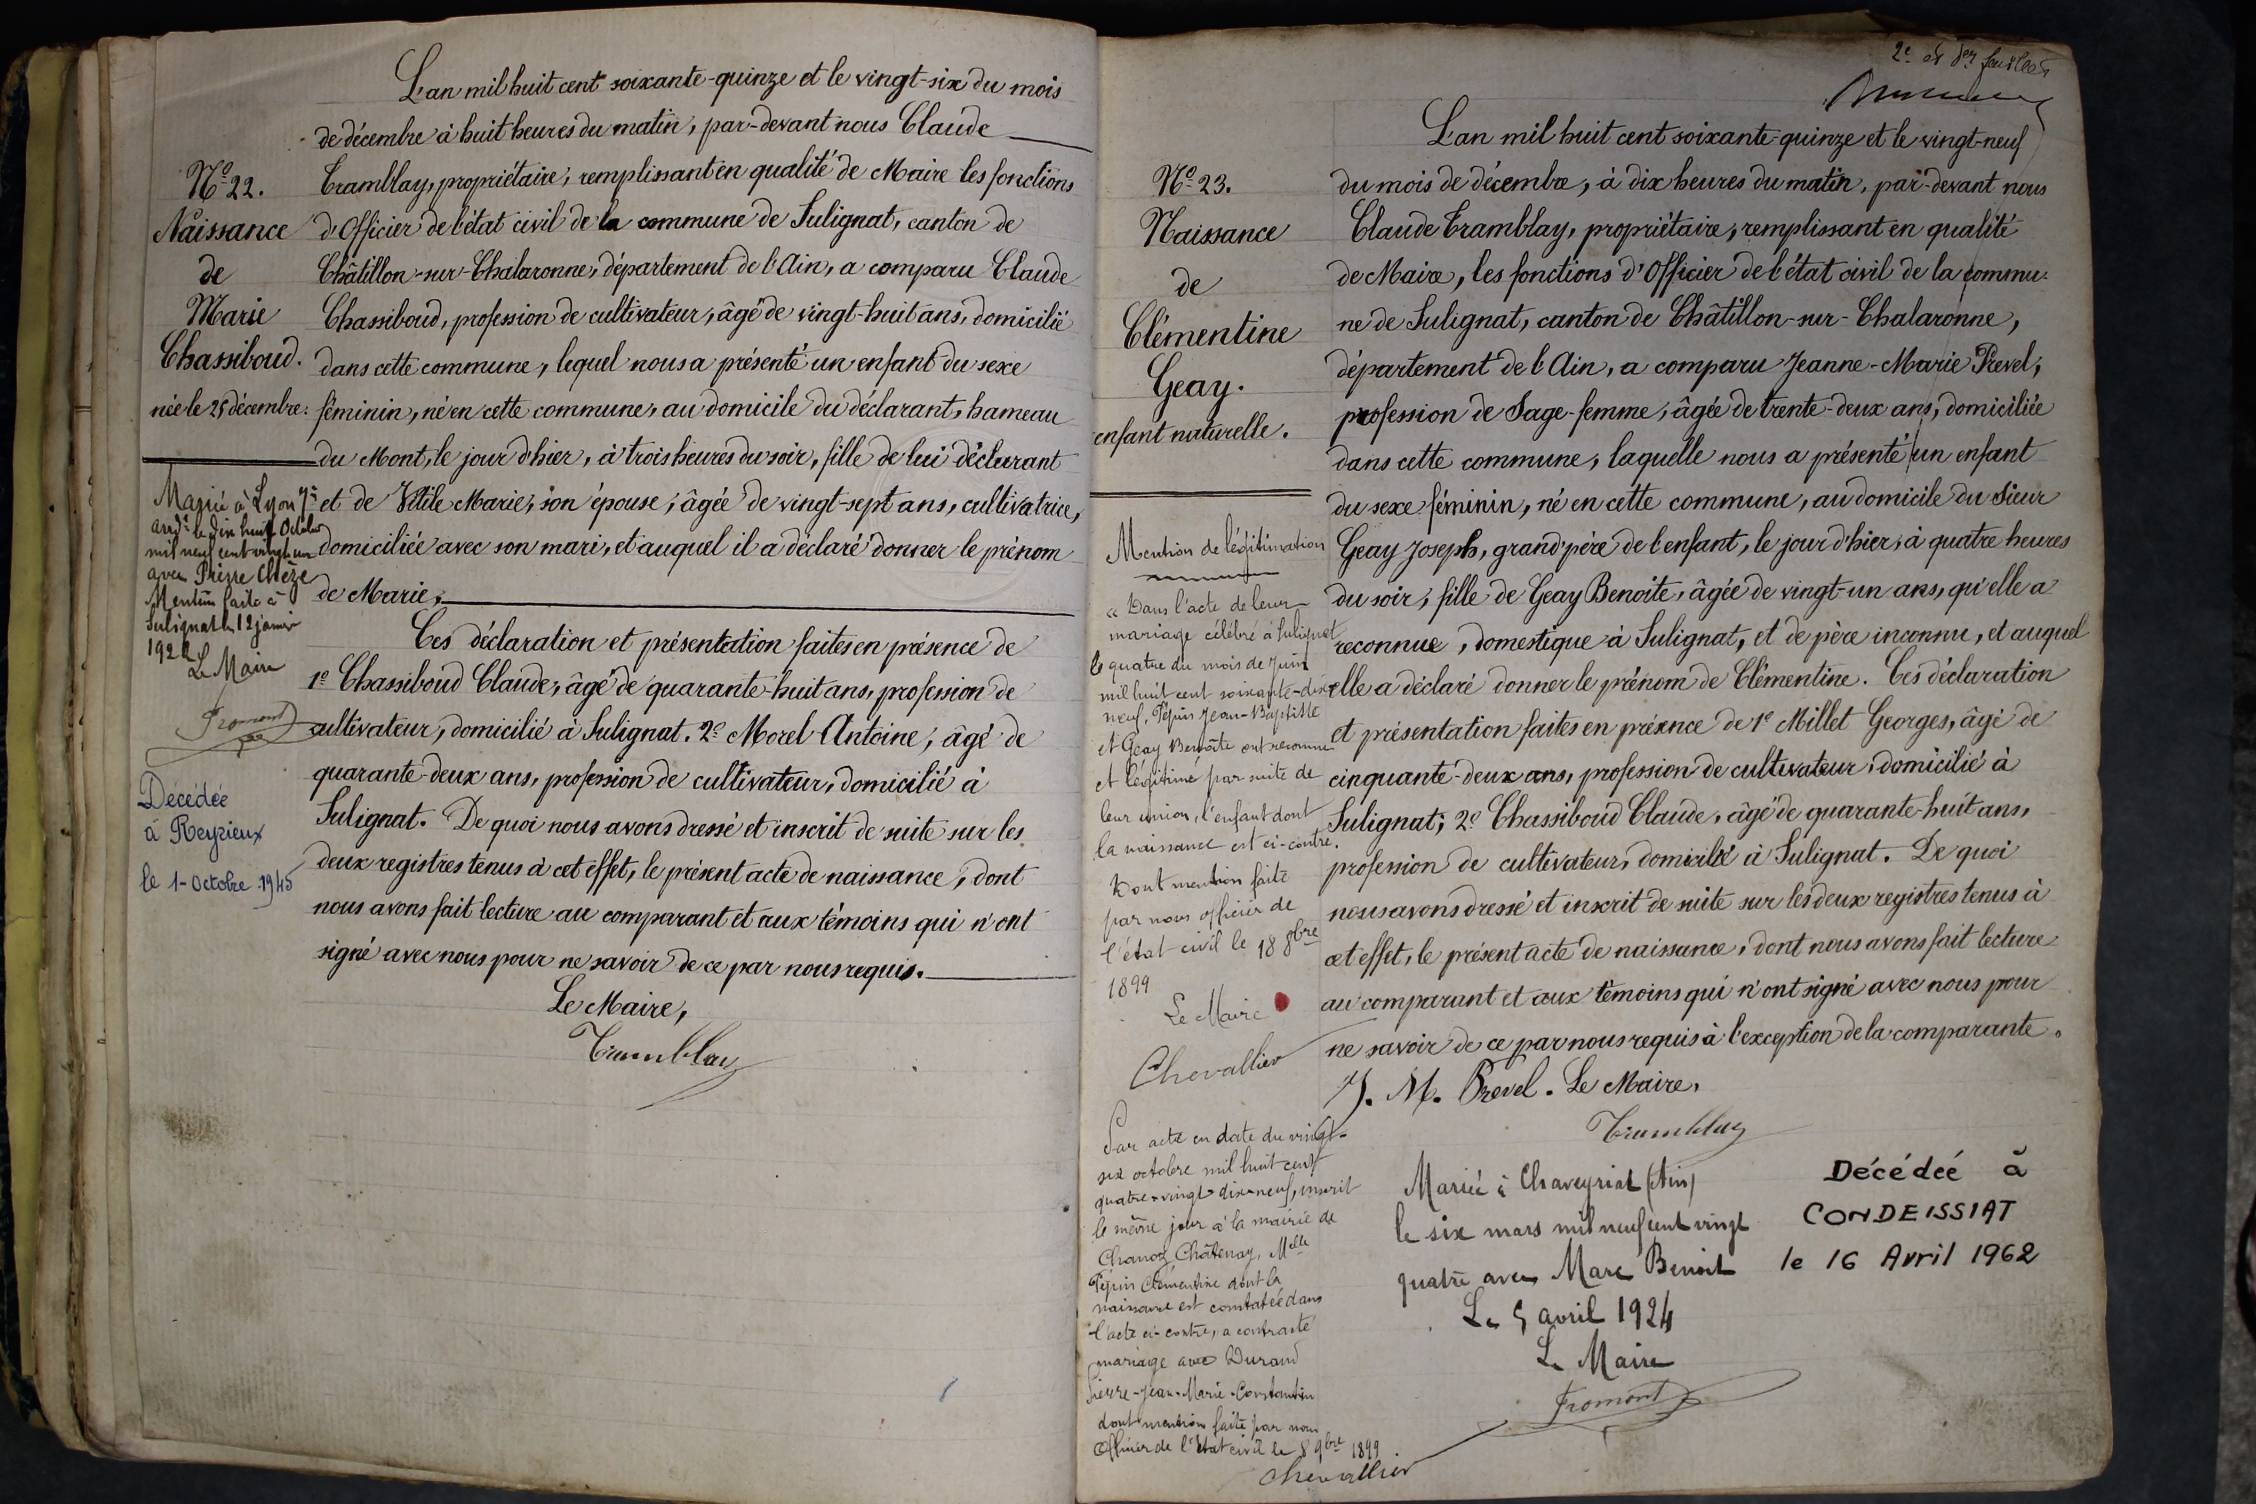 L'an mil huit cent soixante-quinze et le vingt-six du mois
de décembre à huit heures du matin, par-devant nous Claude
Tramblay, propriétaire, remplissant en qualité de Maire les fonctions
d'Officier de l'état civil de la commune de Sulignat, canton de
Châtillon-sur-Chalaronne, département de l'Ain, a comparu Claude
Chassiboud, profession de cultivateur, âgé de vingt-huit ans, domicilié
dans cette commune, lequel nous a présenté un enfant du sexe
féminin, né en cette commune, au domicile du déclarant, hameau
du Mont, le jour d'hier, à trois heures du soir, fille de lui déclarant
et de Marie, son épouse, âgée de vingt-sept ans, cultivatrice,
domiciliée avec son mari, et auquel il a déclaré donner le prénom
de Marie.
Ces déclaration et présentation faites en présence de
1e Chassiboud Claude, âgé de quarante-huit ans, profession de
cultivateur, domicilié à Sulignat. 2e Morel Antoine, âgé de
quarante-deux ans, profession de cultivateur, domicilié à
Sulignat. De quoi nous avons dressé et inscrit de suite sur les
deux registres tenus à cet effet, le présent acte de naissance, dont
nous avons fait lecture au comparant et aux témoins qui n'ont
signé avec nous pour ne savoir de ce par nous requis.
Le Maire,
Tramblay
No 22.
Naissance
de
Marie
Chassiboud.
née le 25 décembre.
Mariée à Lyon 7e
arrdt le dix huit Octobre
mil neuf cent vingt un
avec Pierre Chèze
Mention faite à
Sulignat le 12 janvier
1922
Le Maire
Fromont
Décédée
à Reyrieux
le 1 - Octobre 1945
2e et der feuillet
L'an mil huit cent soixante-quinze et le vingt-neuf
du mois de décembre, à dix heures du matin, par-devant nous
Claude Tramblay, propriétaire, remplissant en qualité
de Maire, les fonctions d'Officier de l'état civil de la commu-
ne de Sulignat, canton de Châtillon-sur-Chalaronne,
département de l'Ain, a comparu Jeanne-Marie Prevel,
profession de Sage-femme, âgée de trente-deux ans, domiciliée
dans cette commune, laquelle nous a présenté un enfant
du sexe féminin, né en cette commune, au domicile du Sieur
Geay Joseph, grand'père de l'enfant, le jour d'hier, à quatre heures
du soir, fille de Geay Benoite, âgée de vingt-un ans, qu'elle a
reconnue, domestique à Sulignat, et de père inconnu, et auquel
elle a déclaré donner le prénom de Clémentine. Ces déclaration
et présentation faites en présence de 1e Millet Georges, âgé de
cinquante-deux ans, profession de cultivateur, domicilié à
Sulignat; 2e Chassiboud Claude, âgé de quarante-huit ans,
profession de cultivateur, domicilié à Sulignat. De quoi
nous avons dressé et inscrit de suite sur les deux registres tenus à
cet effet, le présent acte de naissance, dont nous avons fait lecture
au comparant et aux témoins qui n'ont signé avec nous pour
ne savoir de ce par nous requis à l'exception de la comparante.
J. M. Prevel. Le Maire,
Tramblay
No 23.
Naissance
de
Clémentine
Geay.
enfant naturelle.
Mention de légitimation
"Dans l'acte de leur
mariage célébré à Sulignat
le quatre du mois de Juin
mil huit cent soixante-dix-
neuf, Pépin Jean-Baptiste
et Geay Benoîte ont reconnu
et légitimé par suite de
leur union, l'enfant dont
la naissance est ci-contre.
Dont mention faite
par nous officier de
l'état civil le 18 8bre
1899
Le Maire
Chevallier
Par acte en date du vingt-
six octobre mil huit cent
quatre-vingt-dix-neuf, inscrit
le même jour à la mairie de
Chanoz Châtenay, Melle
Pépin Clémentine dont la
naissance est constatée dans
l'acte ci-contre, a contracté
mariage avec Durand
Pierre-Jean-Marie-Constantin
dont mention faite par nous
Officier de l'état civil le 8 9bre 1899.
Chevallier
Mariée à Chaveyriat (Ain)
le six mars mil neuf cent vingt
quatre avec Marc Benoit
Le 5 avril 1924
Le Maire
Fromont
Décédée à
CONDEISSIAT
le 16 Avril 1962